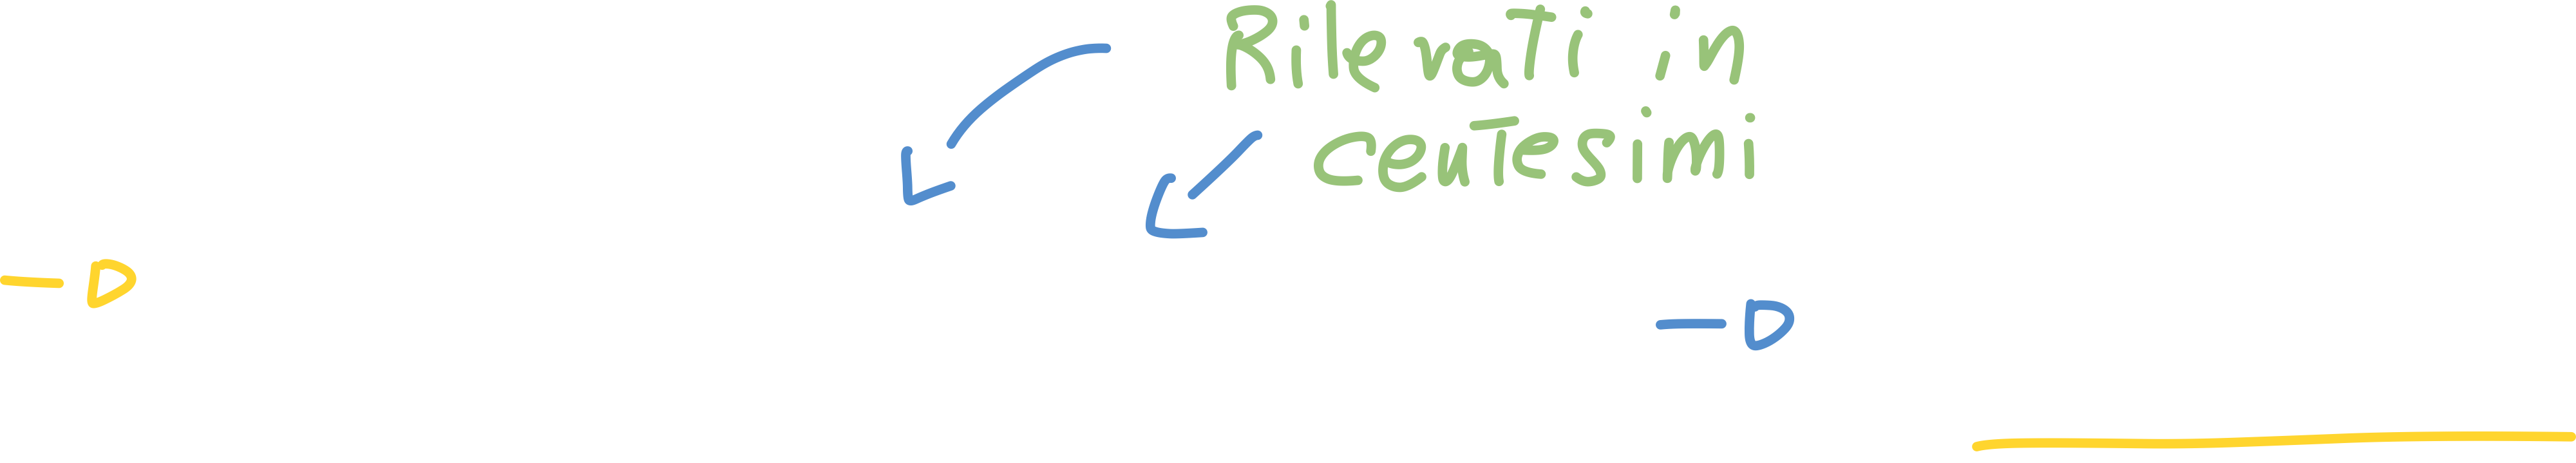 Rilevati in
centesimi